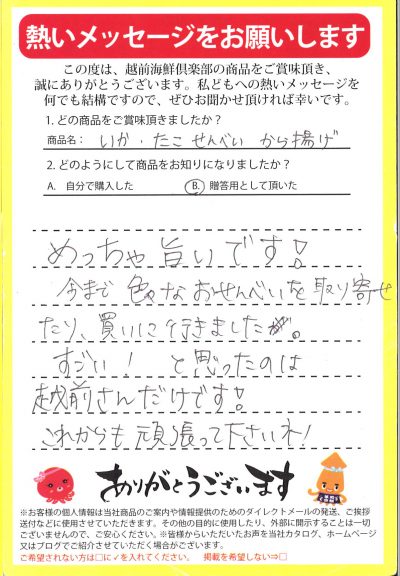 熱いメッセージをお願いします
この度は、越前海鮮倶楽部の商品をご賞味頂き、
誠にありがとうございます。私どもへの熱いメッセージを
何でも結構ですので、ぜひお聞かせ頂ければ幸いです。
1. どの商品をご賞味頂きましたか？
商品名： いか・たこせんべい から揚げ
2. どのようにして商品をお知りになりましたか？
A. 自分で購入した B. 贈答用として頂いた
めっちゃ旨いです！
今まで色々なおせんべいを取り寄せ
たり、買いに行きましたが。
すごい！と思ったのは
越前さんだけです！
これからも頑張って下さいネ！
ありがとうございます
※お客様の個人情報は当社商品のご案内や情報提供のためのダイレクトメールの発送、ご挨拶
送付などに使用させていただきます。その他の目的に使用したり、外部に開示することは一切
ございませんので、ご安心ください。※皆様からいただいたお声を当社カタログ、ホームページ
又はブログでご紹介させていただく場合がございます。
ご希望されない方は□に✓を入れてください。 掲載を希望しない⇒□